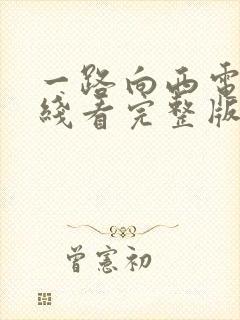 一路向西電
綫看完整版
曾憲初